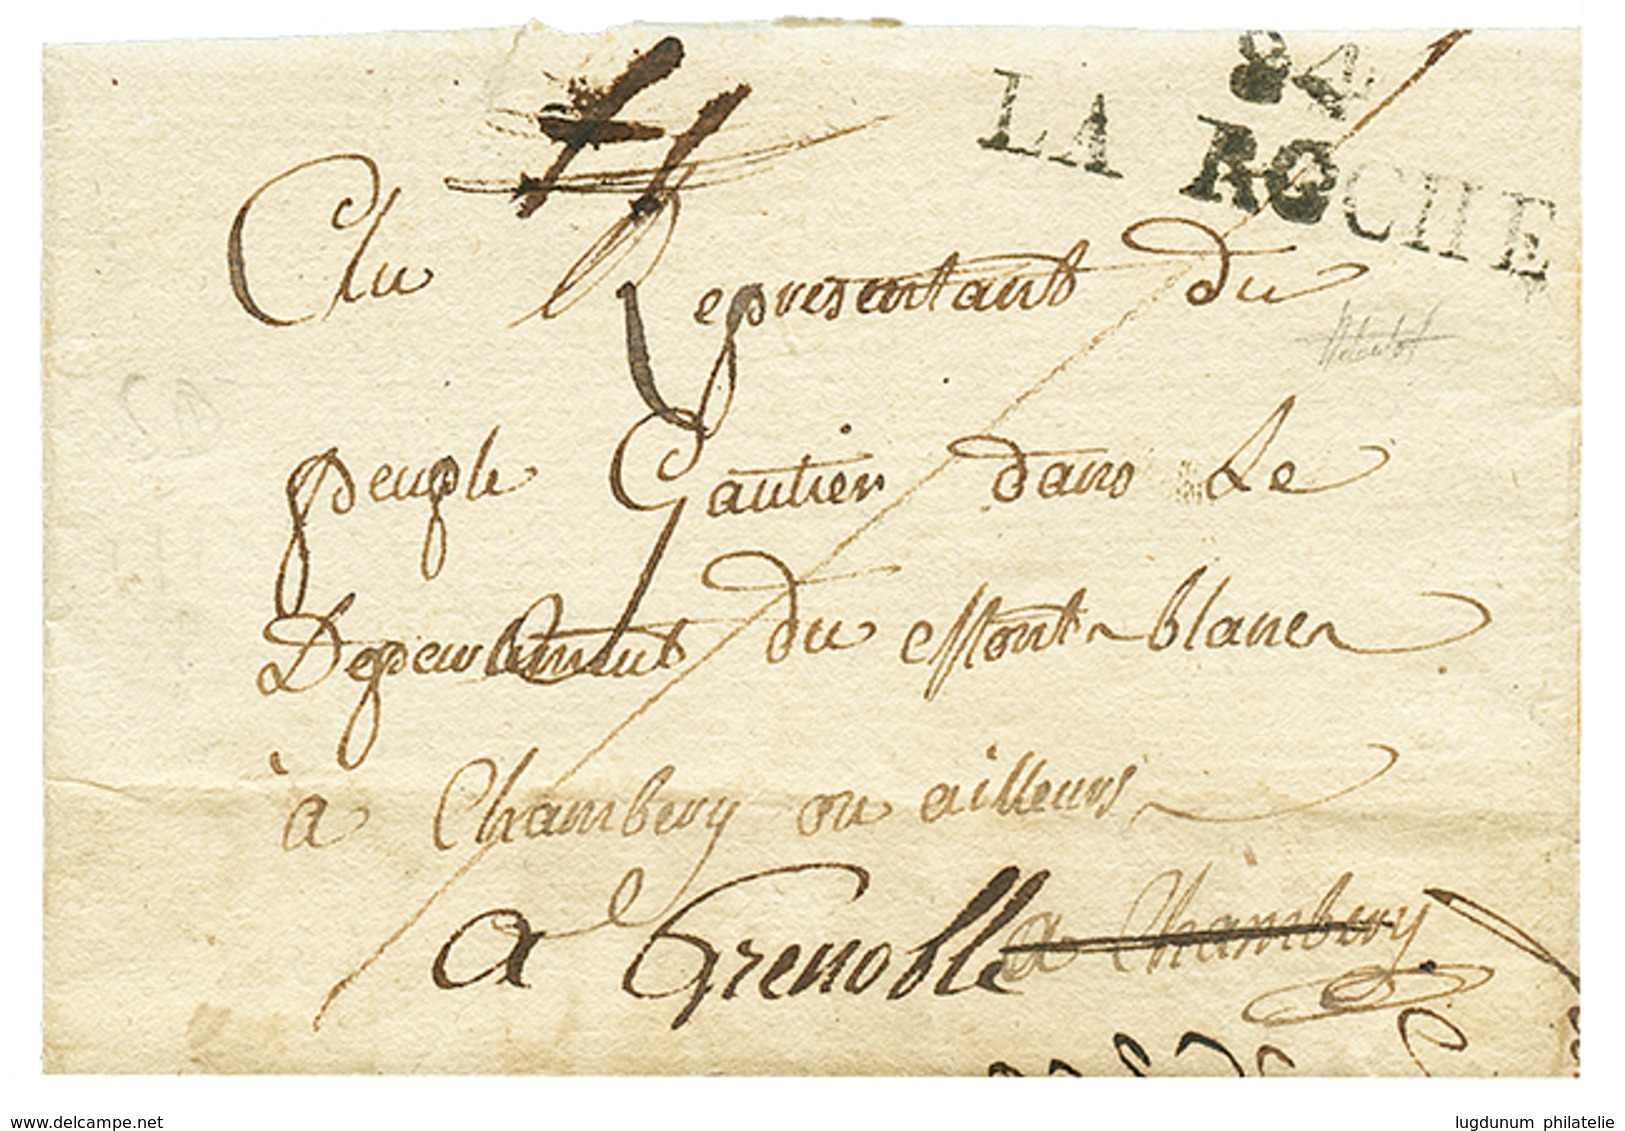 84
LA ROCHE
Au Representant du
peuple Gautier dans Le
Departement du Mont-blanc
à Chambery ou ailleurs
a Grenoble a Chambery
www.delcampe.net
lugdunum philatelie